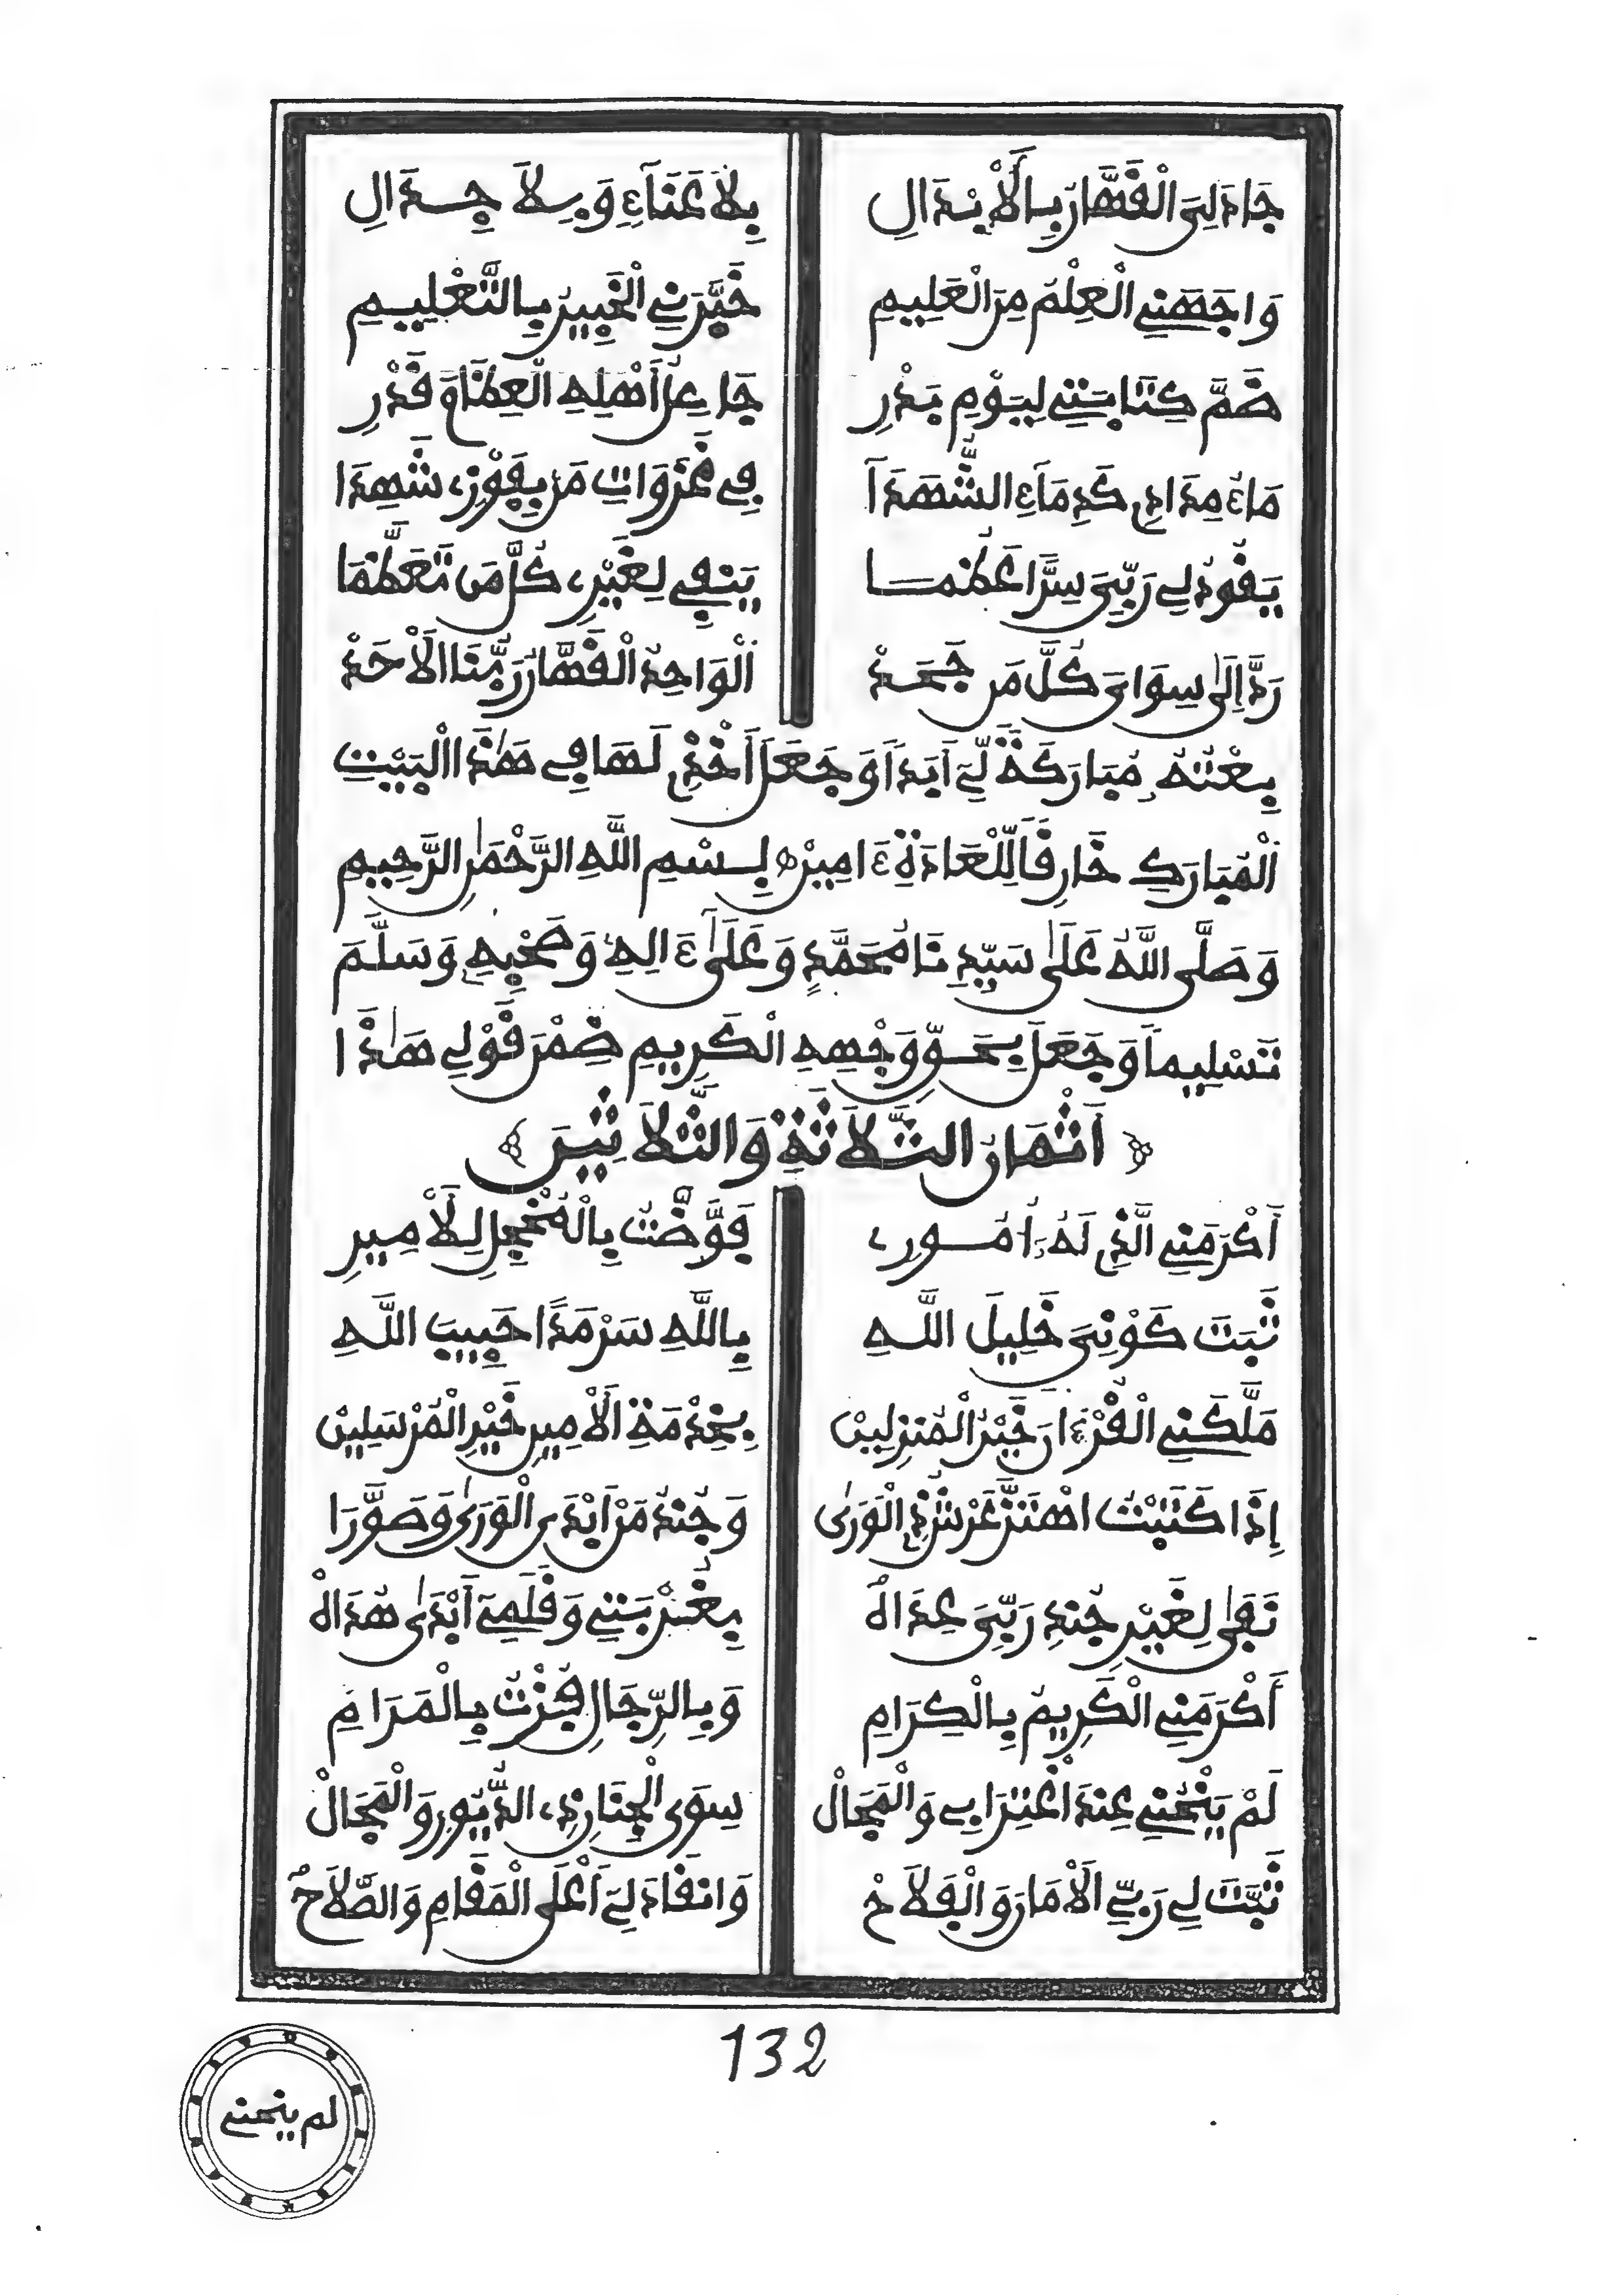 جَادَ لِىَ الْقَهَّارُ بِالْأَبْدَالِ بِلَا عَنَآءٍ وَبِلَا جِدَالِ
وَاجَهَنِي الْعِلْمُ مِنَ الْعَلِيمِ خَيَّرَنِي الْخَبِيرُ بِالتَّعْلِيمِ
ضَمَّ كِتَابَتِي لِيَوْمِ بَدْرِ جَاعِلُ أَهْلِهِ الْعِظَامَ قَدْرِ
مَاءُ مِدَادِي كَدِمَاءِ الشُّهَدَآ فِي غَزَوَاتِ مَن بِفَوْزٍ شَهِدَا
يَقُودُ لِي رَبِّىَ سِرًّا عَظُمَا يَنْفِي لِغَيْرِي كُلَّ مَن تَعَظَّمَا
رَدَّ إِلَى سِوَايَ كُلَّ مَن جَحَدْ الْوَاحِدُ الْقَهَّارُ رَبُّنَا الْأَحَدْ
بِعْتُهُ مُبَارَكَةً لِّي أَبَدًا وَجَعَلَ أَخْذِي لَهَا فِي هَذَا الْبَيْتِ
الْمُبَارَكِ خَارِقًا لِّلْعَادَةِ ءَامِينْ بِسْمِ اللَّهِ الرَّحْمَٰنِ الرَّحِيمِ
وَصَلَّى اللَّهُ عَلَى سَيِّدِنَا مُحَمَّدٍ وَعَلَى ءَالِهِ وَصَحْبِهِ وَسَلَّمَ
تَسْلِيمًا وَجَعَلَ بِحَقِّ وَجْهِهِ الْكَرِيمِ ضِمْنَ قَوْلِي هَٰذَا
أَثْمَانُ الثَّلَاثَةِ وَالثَّلَاثِينَ
أَكْرَمَنِي الَّذِي لَهُ أُمُورِي فَوَّضْتُ بِالْمُخْجِلِ لِلْأَمِيرِ
ثَبَتَ كَوْنِىَ خَلِيلَ اللَّهِ بِاللَّهِ سَرْمَدًا حَبِيبَ اللَّهِ
مَلَّكَنِي الْقُرْءَانَ خَيْرُ الْمُنزِلِينْ بِخِدْمَةِ الْأَمِيرِ خَيْرِ الْمُرْسَلِينْ
إِذَا كَتَبْتُ اهْتَزَّ عَرْشُ ذِي الْوَرَى وَجُندُ مَنْ أَبْدَى الْوَرَى وَصَوَّرَا
نَفَى لِغَيْرِ جُندِ رَبِّىَ عِدَاهْ بِغُرْبَتِي وَقَلَمِي أَبْدَى هُدَاهْ
أَكْرَمَنِي الْكَرِيمُ بِالْكِرَامِ وَبِالرِّجَالِ فُزْتُ بِالْمَرَامِ
لَمْ يَنْحُنِي عِندَ اغْتِرَابِي وَالْمِحَالْ سِوَى الْجَنَازِيذِ الدُّيُورِ وَالْمِحَالْ
ثَبَّتَ لِي رَبِّي الْأَمَانَ وَالْفَلَاحْ وَانقَادَ لِي أَعْلَى الْمَقَامِ وَالصَّلَاحْ
132
لم ينحني